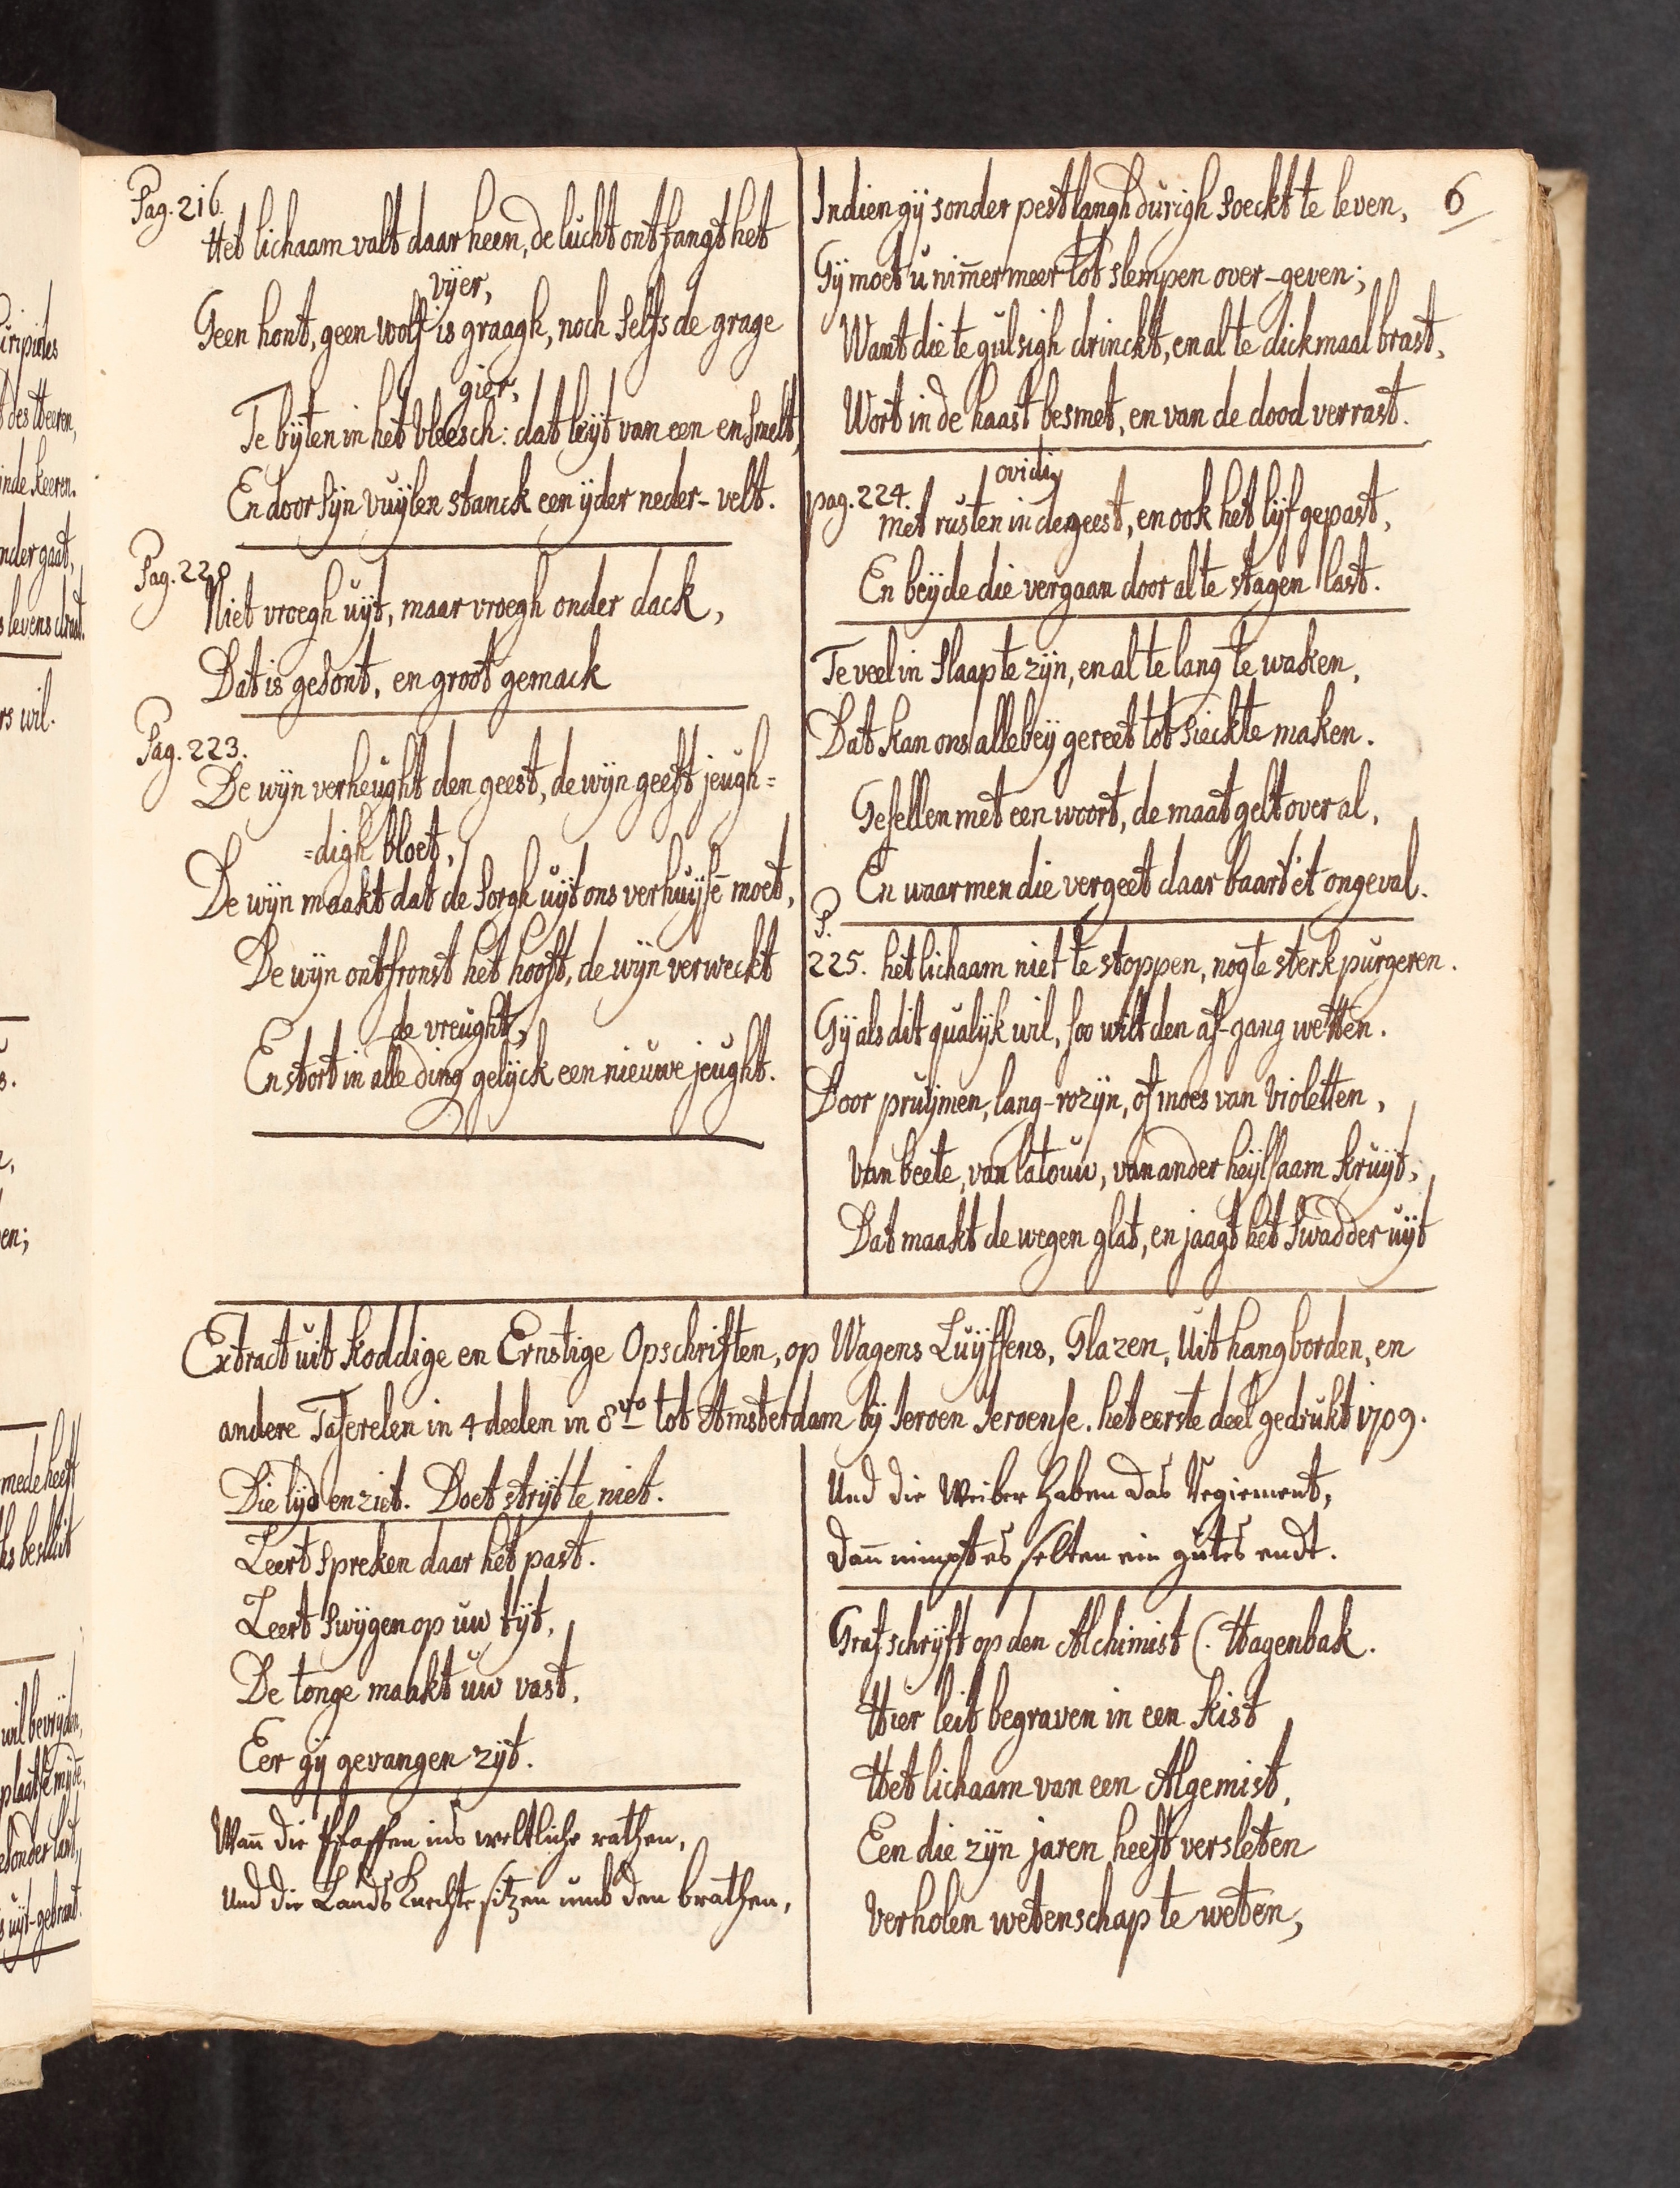 Pag. 216.
Het lichaam valt daar heen, de lucht ontfangt het
vijer,
Geen hont, geen wolf is graagh, noch selfs de grage
gier,
Te bijten in het vleesch: dat leijt van een en smelt,
En door sijn vuijlen stanck een ijder neder-velt.
Pag. 220
Niet vroegh uijt, maar vroegh onder dack,
Dat is gesont, en groot gemack
Pag. 223.
De wijn verheught den geest, de wijn geeft jeugh=
=digh bloet,
De wijn maakt dat de sorgh uijt ons verhuijsē moet,
De wijn ontfronst het hooft, de wijn verweckt
de vreught,
En stort in alle ding gelijck een nieuwe jeught.
6
Indien gij sonder pest langh durigh soeckt te leven,
Gij moet u nim̄ermeer tot slempen over-geven;
Want die te gulsigh drinckt, en al te dickmaal brast,
Wort in de haast besmet, en van de dood verrast.
ovidi
pag. 224.
met rusten in de geest, en ook het lijf gepast,
En beijde die vergaan door al te stagen last.
Te veel in slaap te zijn, en al te lang te waken,
Dat kan ons allebeij gereet tot sieckte maken.
Gesellen met een woort, de maat gelt over al,
En waar men die vergeet daar baart 'et ongeval.
P.
225. het lichaam niet te stoppen, nog te sterk purgeren.
Gij als dit qualijk wil, soo wilt den af-gang wetten.
Door pruijmen, lang-rozijn, of moes van violetten,
Van beete, van latouw, van ander heijlsaam kruijt,
Dat maakt de wegen glat, en jaagt het swadder uijt
Extract uit koddige en Ernstige Opschriften, op Wagens Luijffens, Glazen, Uithangborden, en
andere Taferelen in 4 deelen in 8vo tot Amsterdam bij Jeroen Jeroense. het eerste deel gedrukt 1709.
Die lijd en ziet. Doet strijt te niet.
Leert spreken daar het past.
Leert swijgen op uw tijt,
De tonge maakt uw vast,
Eer gij gevangen zijt.
Wan̄ die Pfaffen ins weltliche rathen,
Und die Lands Knechte sitzen umb den brathen,
Und die Weiber haben das Regiement,
Dan̄ nimpt es selten ein gutes endt.
Grafschrijft op den Alchimist C. Hagenbak.
Hier leit begraven in een kist
Het lichaam van een Algemist,
Een die zijn jaren heeft versleten
Verholen wetenschap te weten,